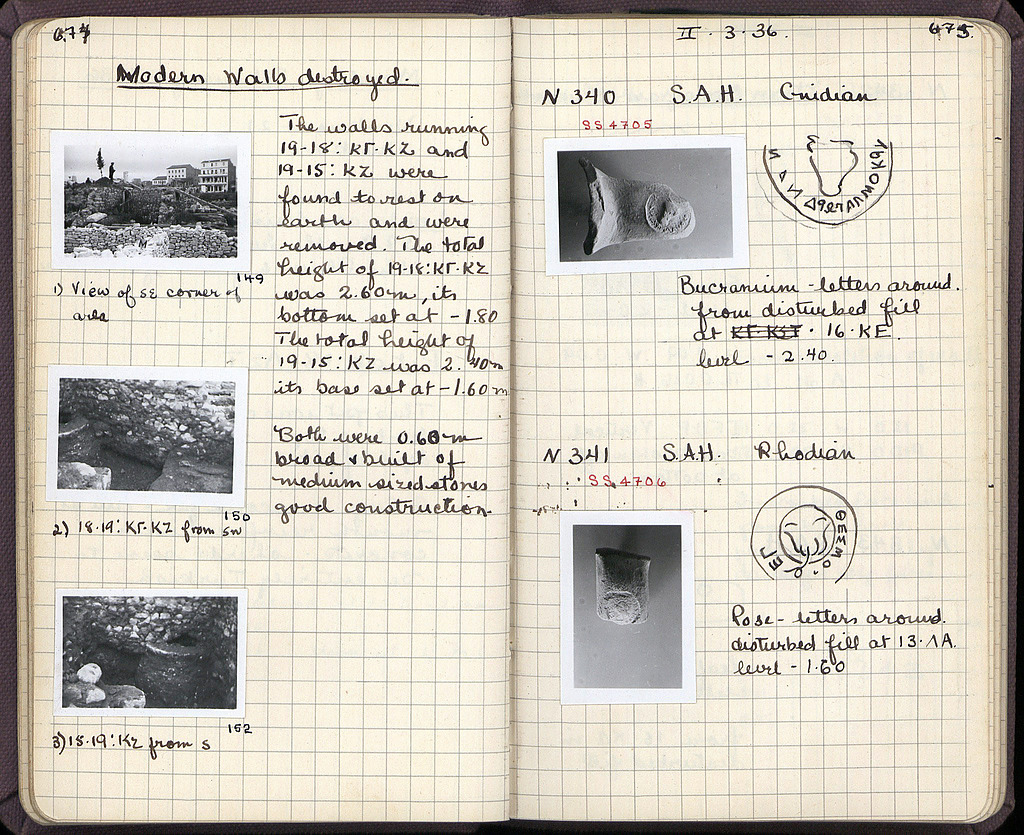 674
Modern Walls destroyed.
The walls running
19-18:ΚΓ-ΚΖ and
19-15: ΚΖ were
found to rest on
earth and were
removed. The total
height of 19-18:ΚΓ-ΚΖ
was 2.60m, its
bottom set at -1.80
The total height of
19-15: ΚΖ was 2.40m
its base set at -1.60m
Both were 0.60m
broad & built of
medium sized stones
good construction.
149
1) View of SE corner of
area
150
2) 18-19: ΚΓ-ΚΖ from SW
152
3) 15-19: ΚΖ from S
II · 3 · 36.
675
N 340 S.A.H. Cnidian
SS 4705
Bucranium - letters around.
from disturbed fill
at 16 · ΚΕ.
level - 2.40.
N 341 S.A.H. Rhodian
SS 4706
ΘΕΣΜΟ
Rose - letters around.
disturbed fill at 13·ΛΑ.
level - 1.60